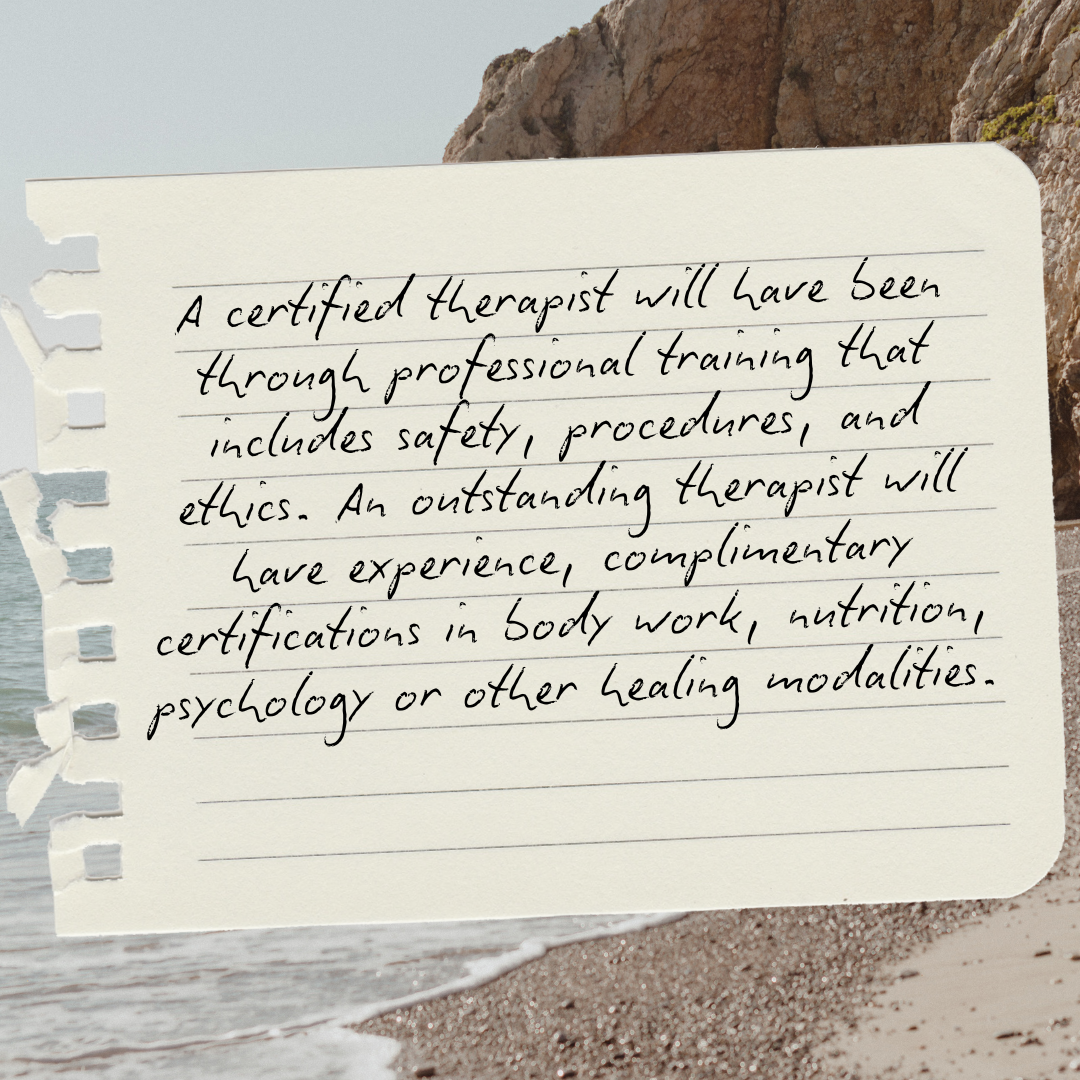 A certified therapist will have been
through professional training that
includes safety, procedures, and
ethics. An outstanding therapist will
have experience, complimentary
certifications in body work, nutrition,
psychology or other healing modalities.